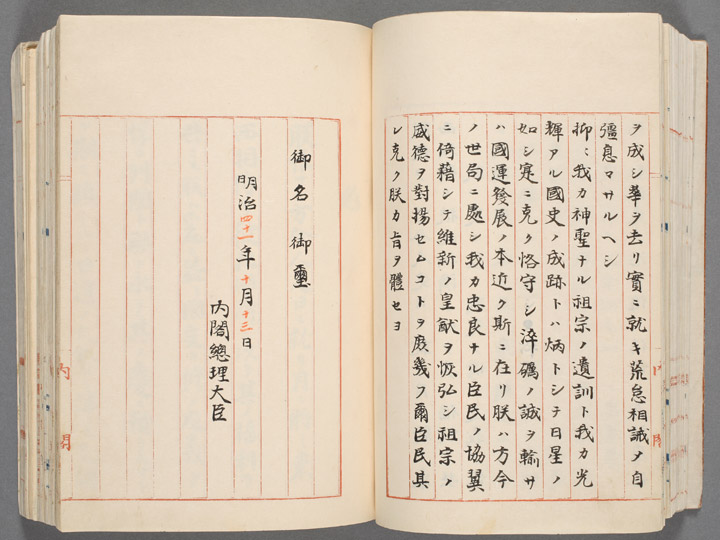 ヲ成シ華ヲ去リ實ニ就キ荒怠相誡メ自
彊息マサルヘシ
抑〻我カ神聖ナル祖宗ノ遺訓ト我カ光
輝アル國史ノ成跡トハ炳トシテ日星ノ
如シ寔ニ克ク恪守シ淬礪ノ誠ヲ輸サ
ハ國運發展ノ本近ク斯ニ在リ朕ハ方今
ノ世局ニ處シ我カ忠良ナル臣民ノ協翼
ニ倚藉シテ維新ノ皇猷ヲ恢弘シ祖宗ノ
威德ヲ對揚セムコトヲ庶幾フ爾臣民其
レ克ク朕カ旨ヲ體セヨ
御名御璽
明治四十一年十月十三日
內閣總理大臣
內閣